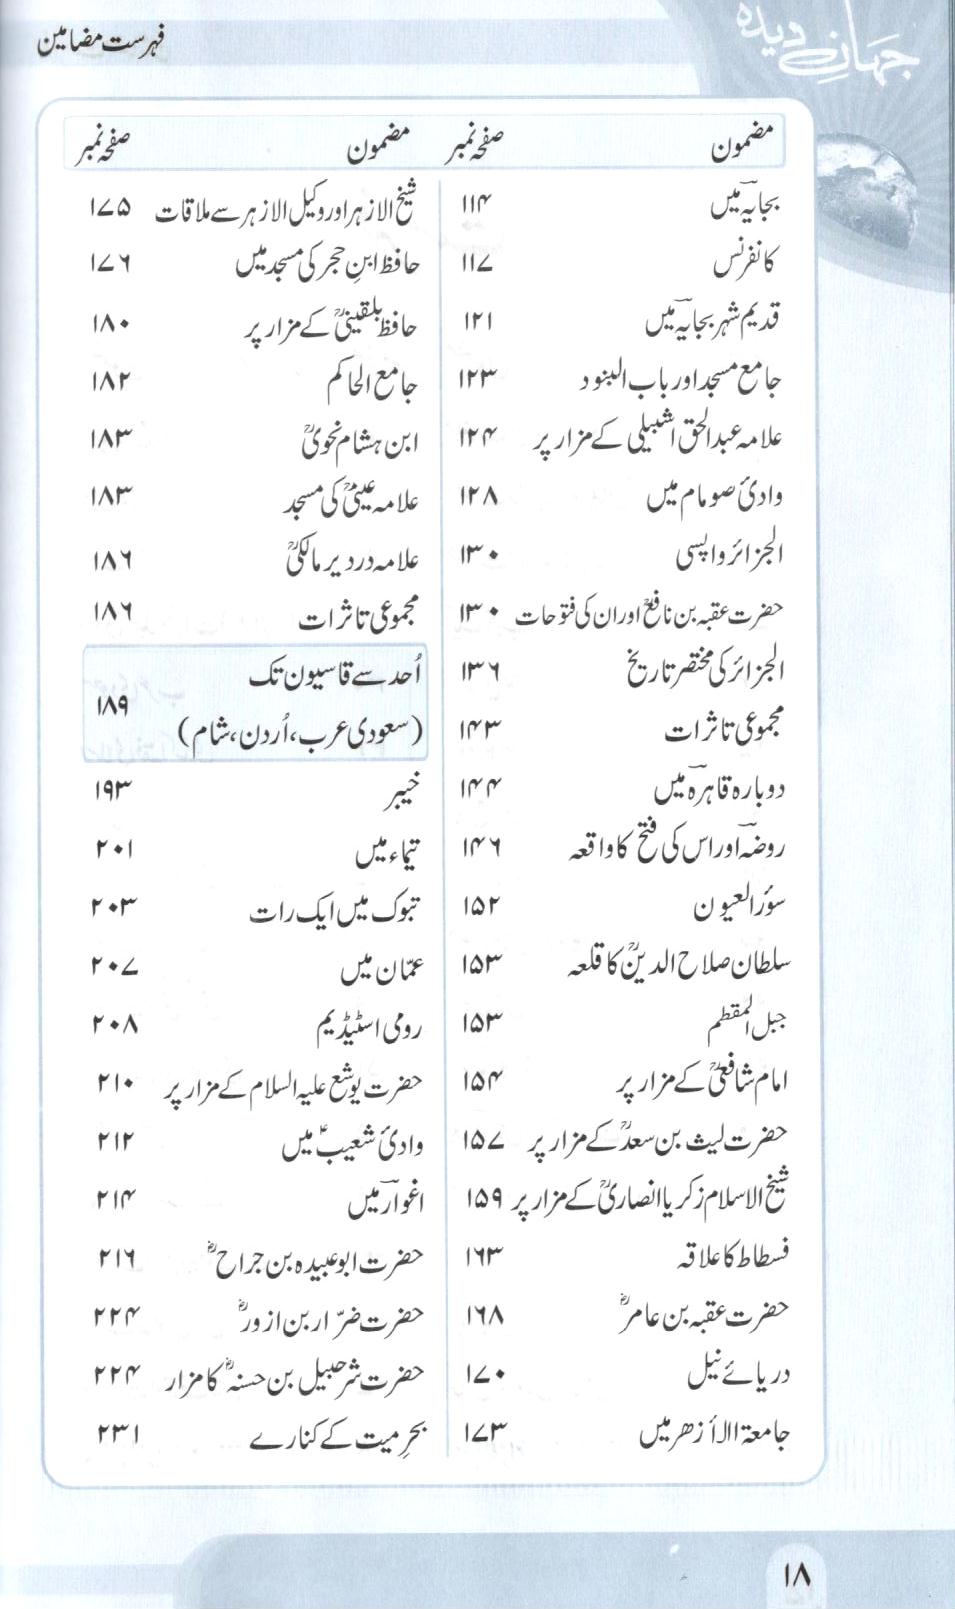 جہانِ دیدہ
فہرست مضامین
مضمون صفحہ نمبر
بجایہ میں ۱۱۴
کانفرنس ۱۱۷
قدیم شہر بجایہ میں ۱۲۱
جامع مسجد اور باب البنود ۱۲۳
علامہ عبدالحق اشبیلی کے مزار پر ۱۲۴
وادیٔ صومام میں ۱۲۸
الجزائر واپسی ۱۳۰
حضرت عقبہ بن نافعؓ اور ان کی فتوحات ۱۳۰
الجزائر کی مختصر تاریخ ۱۳۶
مجموعی تاثرات ۱۴۳
دوبارہ قاہرہ میں ۱۴۴
روضہ اور اس کی فتح کا واقعہ ۱۴۶
سؤر العیون ۱۵۲
سلطان صلاح الدینؒ کا قلعہ ۱۵۳
جبل المقطم ۱۵۳
امام شافعیؒ کے مزار پر ۱۵۴
حضرت لیث بن سعدؒ کے مزار پر ۱۵۷
شیخ الاسلام زکریا انصاریؒ کے مزار پر ۱۵۹
فسطاط کا علاقہ ۱۶۳
حضرت عقبہ بن عامرؓ ۱۶۸
دریائے نیل ۱۷۰
جامعة الأزھر میں ۱۷۳
مضمون صفحہ نمبر
شیخ الازہر اور وکیل الازہر سے ملاقات ۱۷۵
حافظ ابنِ حجر کی مسجد میں ۱۷۶
حافظ بلقینیؒ کے مزار پر ۱۸۰
جامع الحاکم ۱۸۲
ابن ہشام نحویؒ ۱۸۳
علامہ عینیؒ کی مسجد ۱۸۳
علامہ دردیر مالکیؒ ۱۸۶
مجموعی تاثرات ۱۸۶
اُحد سے قاسیون تک
(سعودی عرب، اُردن، شام) ۱۸۹
خیبر ۱۹۳
تیماء میں ۲۰۱
تبوک میں ایک رات ۲۰۳
عمّان میں ۲۰۷
رومی اسٹیڈیم ۲۰۸
حضرت یوشع علیہ السلام کے مزار پر ۲۱۰
وادیٔ شعیبؑ میں ۲۱۲
اغوار میں ۲۱۴
حضرت ابوعبیدہ بن جراحؓ ۲۱۶
حضرت ضرّار بن ازورؓ ۲۲۴
حضرت شرحبیل بن حسنہؓ کا مزار ۲۲۴
بحرِ میت کے کنارے ۲۳۱
۱۸